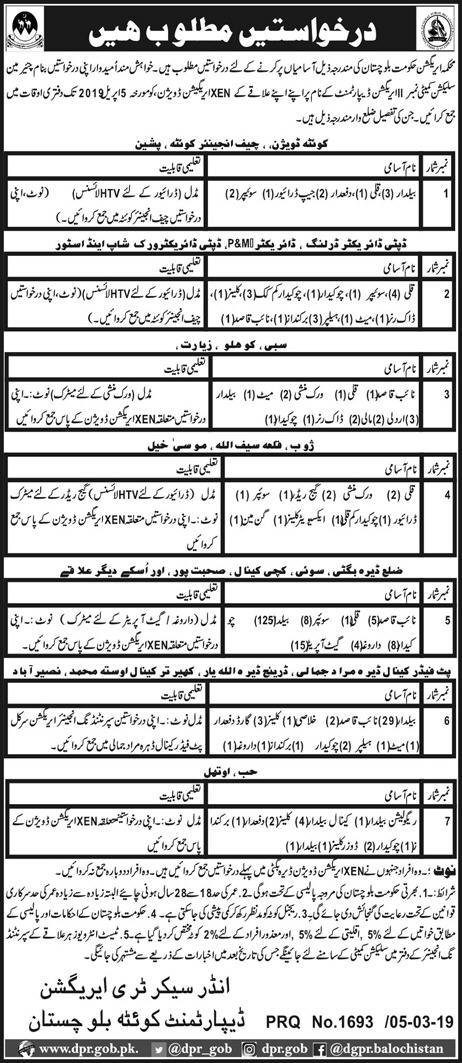 درخواستیں مطلوب ھیں
محکمہ ایریگیشن حکومت بلوچستان کی مندرجہ ذیل آسامیاں پر کرنے کے لئے درخواستیں مطلوب ہیں۔ خواہش مند اُمیدوار اپنی درخواستیں بنام چیئرمین
سلیکشن کمیٹی نمبر II ایریگیشن ڈیپارٹمنٹ کے نام پر اپنے اپنے علاقے کے XEN ایریگیشن ڈویژن، کو مورخہ 5 اپریل 2019 تک دفتری اوقات میں
جمع کرائیں۔ جن کی تفصیل ضلع وار مندرجہ ذیل ہے۔
کوئٹہ ڈویژن، چیف انجینئر کوئٹہ، پشین
نمبر شمار نام آسامی تعلیمی قابلیت
1 بیلدار (3)، قلی (1)، دفعدار (2) جیپ ڈرائیور (1) سوئپر (2) مڈل (ڈرائیور کے لئے HTV لائسنس) (نوٹ، اپنی
درخواستیں چیف انجینئر کوئٹہ میں جمع کروائیں۔)
ڈپٹی ڈائریکٹر ڈرلنگ، ڈائریکٹر P&M، ڈپٹی ڈائریکٹر ورک شاپ اینڈ اسٹور
نمبر شمار نام آسامی تعلیمی قابلیت
2 قلی (4)، سوئپر (1)، چوکیدار (1)، چوکیدار کم کک (3)، کلینر (1)، مڈل (ڈرائیور کے لئے HTV لائسنس) (نوٹ، اپنی درخواستیں
ڈاک رنر (1)، میٹ (1)، ہیلپر (3) برکنداز (1)، نائب قاصد (1) چیف انجینئر کوئٹہ میں جمع کروائیں۔)
سبی، کوهلو، زیارت،
نمبر شمار نام آسامی تعلیمی قابلیت
3 نائب قاصد (1) قلی (1) ورک منشی (2) میٹ (1) بیلدار مڈل (ورک منشی کے لئے میٹرک) نوٹ:۔ اپنی
(3) اردلی (2) مالی (2) ڈاک رنر (1) چوکیدار (1) درخواستیں متعلقہ XEN ایریگیشن ڈویژن کے پاس جمع کروائیں
ژوب، قلعہ سیف اللہ، موسیٰ خیل
نمبر شمار نام آسامی تعلیمی قابلیت
4 قلی (2) ورک منشی (2) گیج ریڈر (1) سوئپر (1) مڈل (ڈرائیور کے لئے HTV لائسنس) گیج ریڈر کے لئے میٹرک
ڈرائیور (1) چوکیدار کم قلی (1) ایکسیویٹر کلینر (1) گن مین (1) نوٹ:۔ اپنی درخواستیں متعلقہ XEN ایریگیشن ڈویژن کے پاس جمع
کروائیں
ضلع ڈیرہ بگٹی، سوئی، کچی کینال، صحبت پور، اور اُسکے دیگر علاقے
نمبر شمار نام آسامی تعلیمی قابلیت
5 نائب قاصد (5) قلی (1) سوئپر (8) بیلدار (125) چو مڈل (داروغہ/گیٹ آپریٹر کے لئے میٹرک) نوٹ:۔ اپنی
کیدار (8) داروغہ (4) گیٹ آپریٹر (15) درخواستیں متعلقہ XEN ایریگیشن ڈویژن کے پاس جمع کروائیں
پٹ فیڈر کینال ڈیرہ مراد جمالی، ڈرینج ڈیرہ اللہ یار، کھیر تر کینال اوستہ محمد، نصیر آباد
نمبر شمار نام آسامی تعلیمی قابلیت
6 بیلدار (29) نائب قاصد (2) خلاصی (1) کلینر (3) گارڈ دفعدار مڈل نوٹ:۔ اپنی درخواستیں سپرنٹنڈنگ انجینئر ایریگیشن سرکل
(1) میٹ (1) ہیلپر (2) چوکیدار (1) برکنداز (1) داروغہ (1) پٹ فیڈر کینال ڈیرہ مراد جمالی میں جمع کروائیں۔
حب، اوتھل
نمبر شمار نام آسامی تعلیمی قابلیت
7 ریگولیشن بیلدار (1) کینال بیلدار (4) کلینر (2) دفعدار (1) برکندا مڈل نوٹ:۔ اپنی درخواستیں متعلقہ XEN ایریگیشن ڈویژن کے
ز (1) چوکیدار (2) ڈوزر کلینر (1) بیلدار (1) پاس جمع کروائیں
نوٹ:۔ وہ افراد جنہوں نے XEN ایریگیشن ڈویژن ڈیرہ بگٹی میں پہلے درخواستیں جمع کرائیں ہیں۔ وہ افراد دوبارہ جمع نہ کرائیں۔
شرائط:۔ 1۔ بھرتی حکومت بلوچستان کی مروجہ پالیسی کے تحت ہوگی۔ 2۔ عمر کی حد 18 سے 28 سال ہونی چاہئے البتہ زیادہ سے زیادہ عمر کی حد سرکاری
قوانین کے تحت رعایت کی گنجائش دی جائے گی۔ 3۔ ریجنل کوٹہ کو مدنظر رکھ کر کمی پیشی کی جاسکتی ہے۔ 4۔ حکومت بلوچستان کے احکامات اور پالیسی کے
مطابق خواتین کے لئے 5% اقلیتی کے لئے 5%، اور معذور افراد کے لئے 2% کوٹہ مختص کر دیا گیا ہے۔ 5۔ ٹیسٹ انٹرویوز ہر علاقے کے سپرنٹنڈ
نگ انجینئر کے دفتر میں سلیکشن کمیٹی کے سامنے لئے جائینگے جس کی تاریخ بعد میں اخبارات کے ذریعے سے مشتہر کی جائیگی۔
انڈر سیکرٹری ایریگشن
ڈیپارٹمنٹ کوئٹہ بلوچستان
PRQ No.1693 /05-03-19
www.dpr.gob.pk. @dpr_gob @dgpr.balochistan